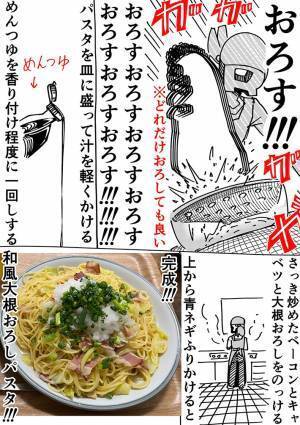 おろす!!!
ガガガガ
※どれだけおろしても良い
おろすおろすおろすおろす
おろすおろすおろす!!!!!!
パスタを皿に盛って汁を軽くかける
めんつゆ
めんつゆを香り付け程度に一回しする
さっき炒めたベーコンとキャ
ベツと大根おろしをのっける
上から青ネギふりかけると
完成!!!
和風大根おろしパスタ!!!